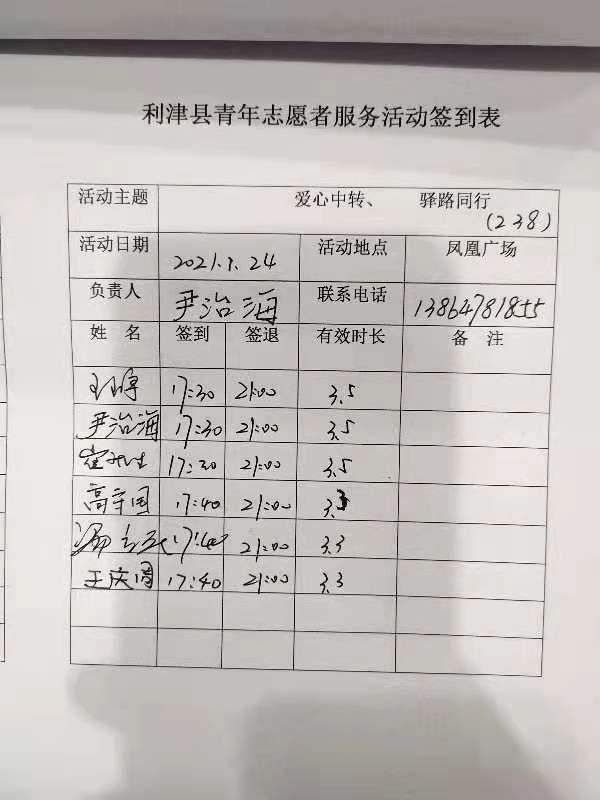 利津县青年志愿者服务活动签到表
活动主题 爱心中转、 驿路同行
(238)
活动日期 2021.9.24 活动地点 凤凰广场
负责人 尹治海 联系电话 13864781855
姓名 签到 签退 有效时长 备注
17:30 21:00 3.5
尹治海 17:30 21:00 3.5
17:30 21:00 3.5
高守国 17:40 21:00 3.3
17:40 21:00 3.3
王庆周 17:40 21:00 3.3